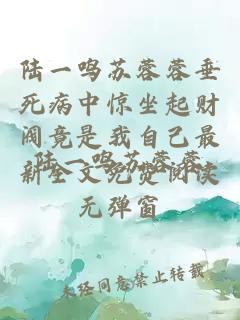 陆一鸣苏蓉蓉垂
死病中惊坐起财
阀竟是我自己最
新全文免费阅读
无弹窗
陆一鸣苏蓉蓉
未经同意禁止转载